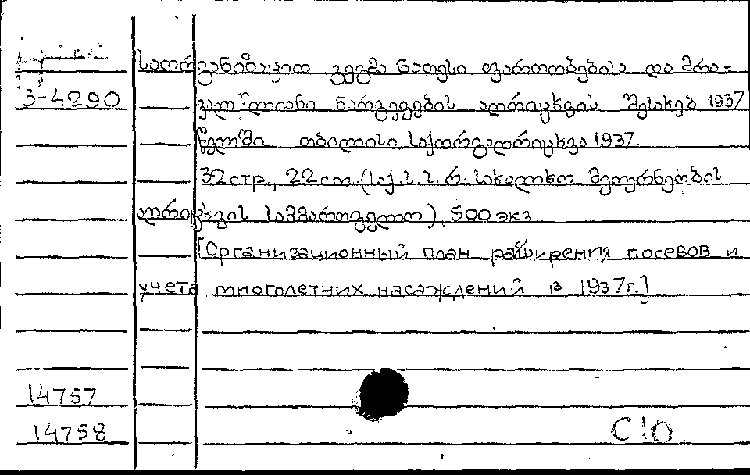 საორგანიზაციო გეგმა ნათესი ფართობების და მრა-
3-4290 ვალწლიანი ნარგავების აღრიცხვის შესახებ 1937
წელში თბილისი საქორგაღრიცხვა 1937
32 стр., 22 см. (საქ. ს. ს. რ. სახალხო მეურნეობის
აღრიცხვის სამმართველო), 500 экз.
[Организационный план расширения посевов и
учета многолетних насаждений в 1937г.]
14757
14758 С10